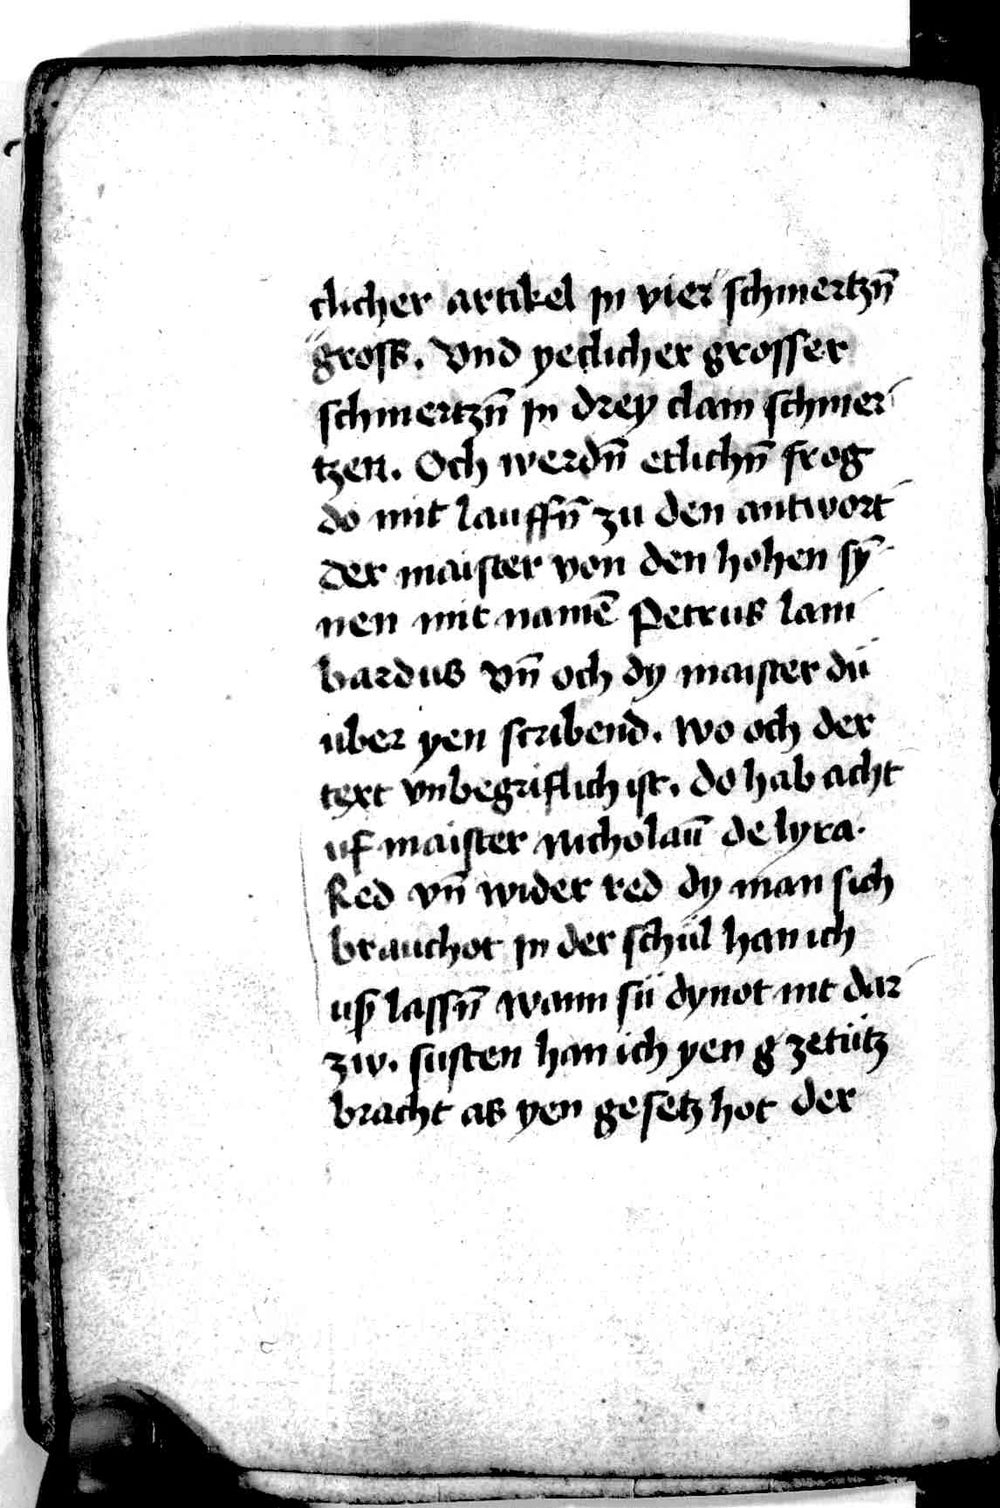 tlicher artikel jn vier schmertzn̄
gross. Vnd yetlicher grosser
schmertzn̄ jn drey clain schmer
tzen. Och werdn̄ etlichn̄ frog
do mit lauffn̄ zu den antwort
der maister von den hohen sÿ
nen mit namē Petrus lam
bardus vn̄ och dy maister dü
uber yen scribend. Wo och der
text vnbegriflich ist. do hab acht
uf maister Nicholaū de lyra.
Red vn̄ wider red dy man sich
brauchot jn der schůl han ich
uß lassn̄ wann sü dynot nit dar
zw. susten han ich yen g zetütz
bracht as yen gesetz hot der